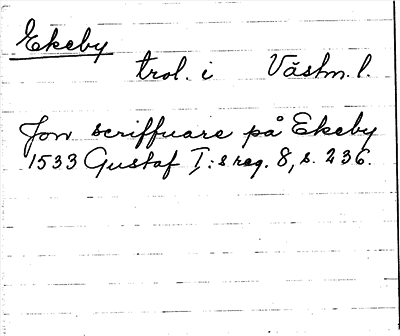 Ekeby
trol. i Västm.l.
Jon scriffuare på Ekeby
1533 Gustaf I:s reg. 8, s. 236.